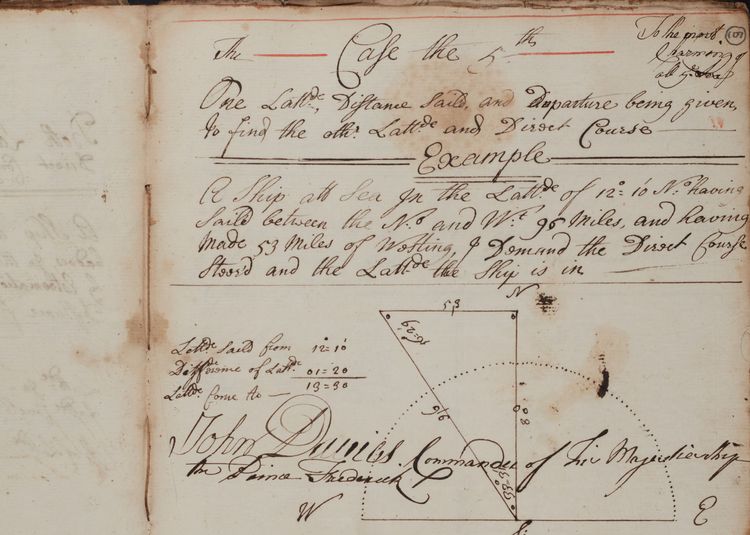 The Case the 5th
To the most
Charming of
all
One Lattde, Distance Saild, and Departure being given,
to find the othr Lattde and Direct Course
Example
A Ship att Sea In the Lattde of 12°:10 No having
Saild between the No and Wt 96 Miles, and having
Made 53 Miles of Westing, I Demand the Direct Course
Steerd and the Lattde the Ship is in
N
53
Lattde Saild from 12°=10
Difference of Lattde 01=20
Lattde Come to 13=30
96
80
John Davies Commander of His Majesties Ship
the Prince Frederick
W
E
S